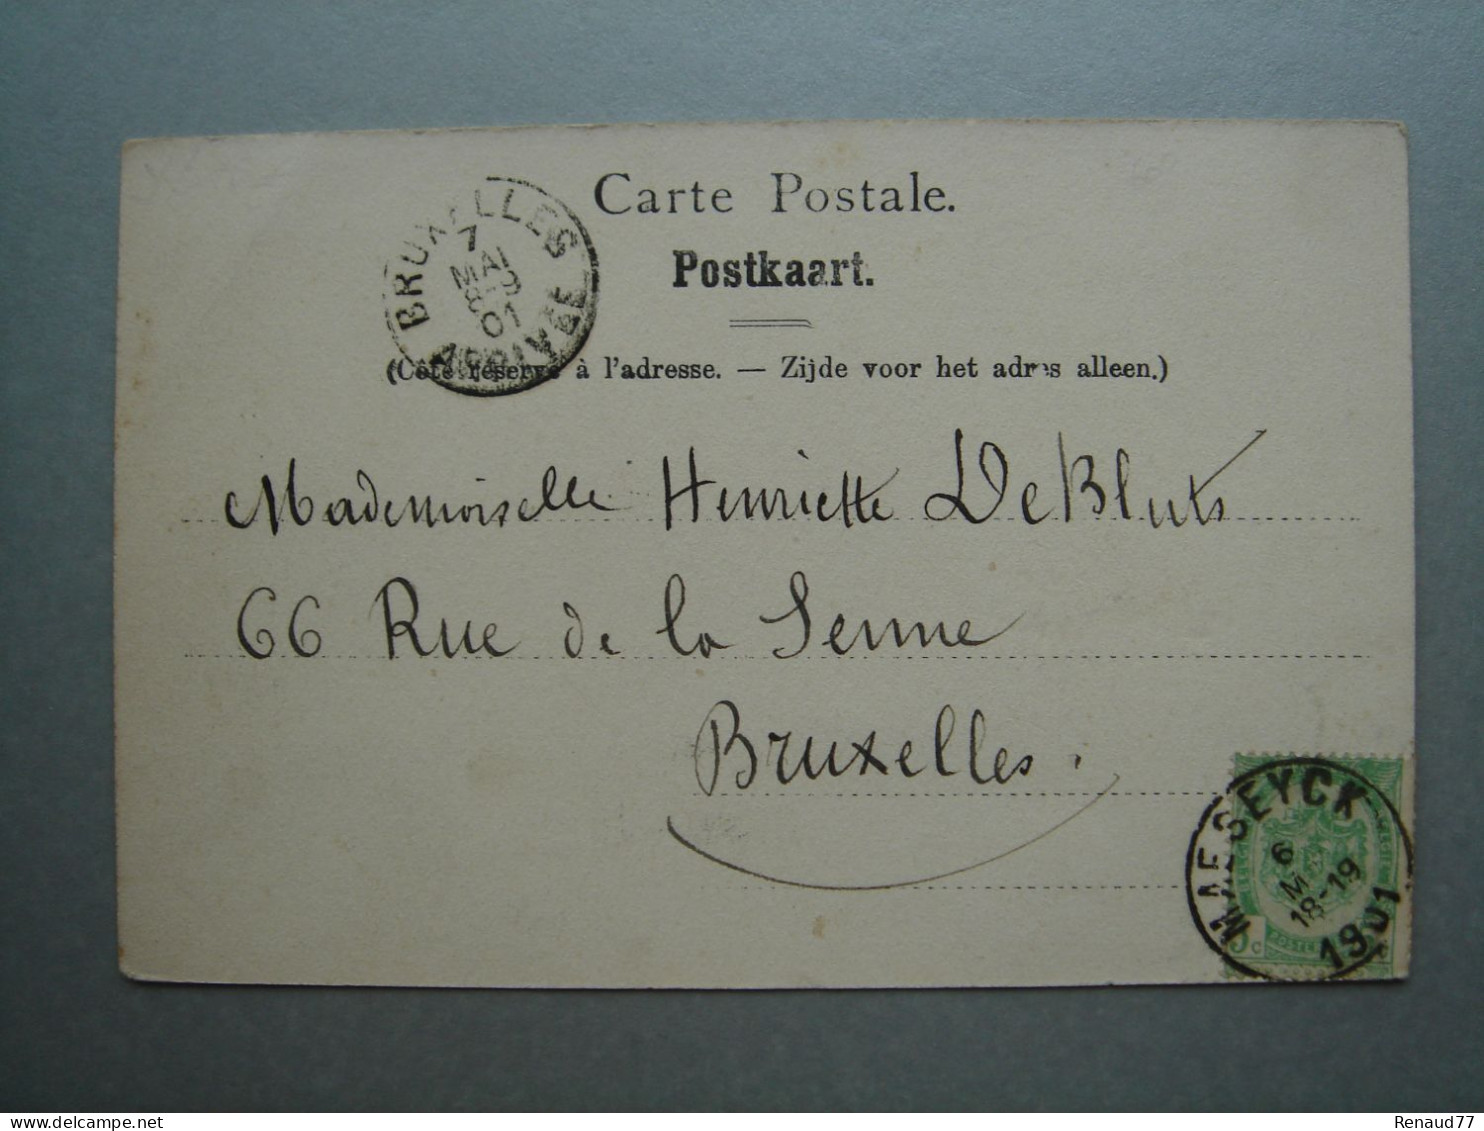 Carte Postale.
Postkaart.
BRUXELLES
7
MAI
01
ARRIVÉE
(Côté réservé à l'adresse. — Zijde voor het adres alleen.)
Mademoiselle Henriette De Bluts
66 Rue de la Senne
Bruxelles.
MAESEYCK
6
M
18-19
1901
delcampe.net
Renaud77